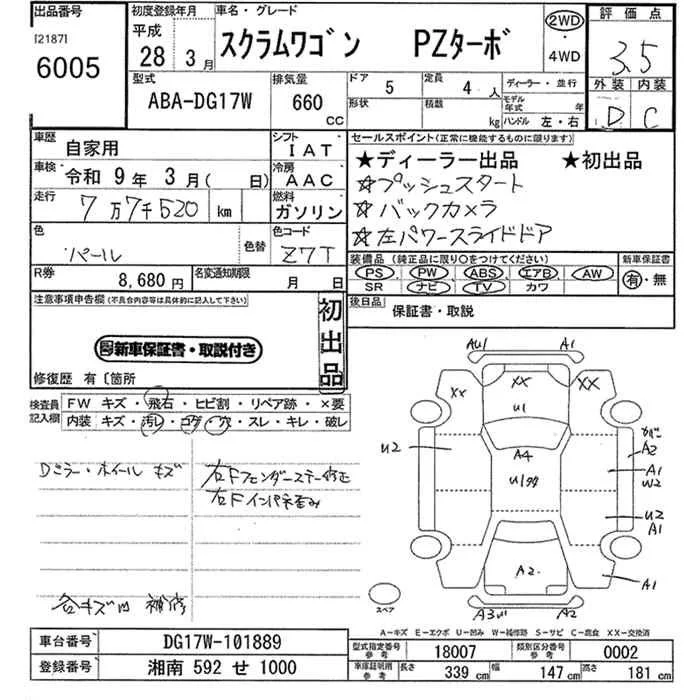 出品番号 初度登録年月 車名・グレード 評価点
[2187] 平成 スクラムワゴン PZターボ 2WD・4WD 3.5
6005 28年 3月
外装 内装
D C
型式 排気量 ドア 5 定員 4人 ディーラー・並行
ABA-DG17W 660cc 形状 積載 kg モデル年式 年
ハンドル 左・右
車歴 自家用 シフト IAT セールスポイント(正常に機能するものに限ります)
★ディーラー出品 ★初出品
車検 令和 9年 3月( 日) 冷房 AAC
☆プッシュスタート
走行 7万7千520 km 燃料 ガソリン
☆バックカメラ
色 パール 色替 色コード Z7T
☆左パワースライドドア
装備品(純正品に限り○をつけてください) 新車保証書
PS PW ABS エアB AW 有・無
SR ナビ TV カワ
R券 8,680円 名変通知期限 月 日
注意事項申告欄(不具合内容等は具体的に記入して下さい) 初出品
後日品 保証書・取説
新車保証書・取説付き
修復歴 有〔箇所
検査員記入欄 FW キズ・飛石・ヒビ割・リペア跡・×要
内装 キズ・汚レ・コゲ・穴・スレ・キレ・破レ
Dミラー・ホイールキズ
右Fフェンダーステー修正
右Fインパネ歪み
各キズ凹 補修
AU1 A1
XX XX XX
U1
U2 A4 A2
A1
W2
U2
A1
A2 A1
スペア A2
A−キズ E−エクボ U−凹み W−補修跡 S−サビ C−腐食 XX−交換済
車台番号 DG17W-101889
登録番号 湘南 592 せ 1000
型式指定番号 参考 18007 類別区分番号 参考 0002
車庫証明用 参考 長さ 339cm 幅 147cm 高さ 181cm